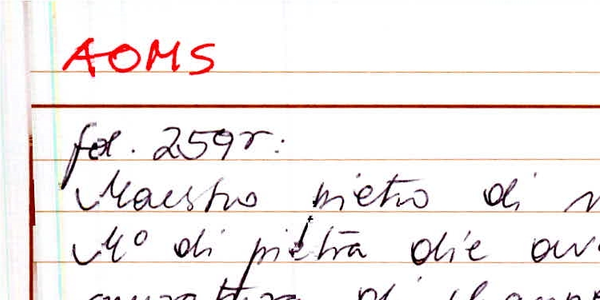 AOMS
fol. 259r:
Maestro pietro di
Mº di pietra die
di